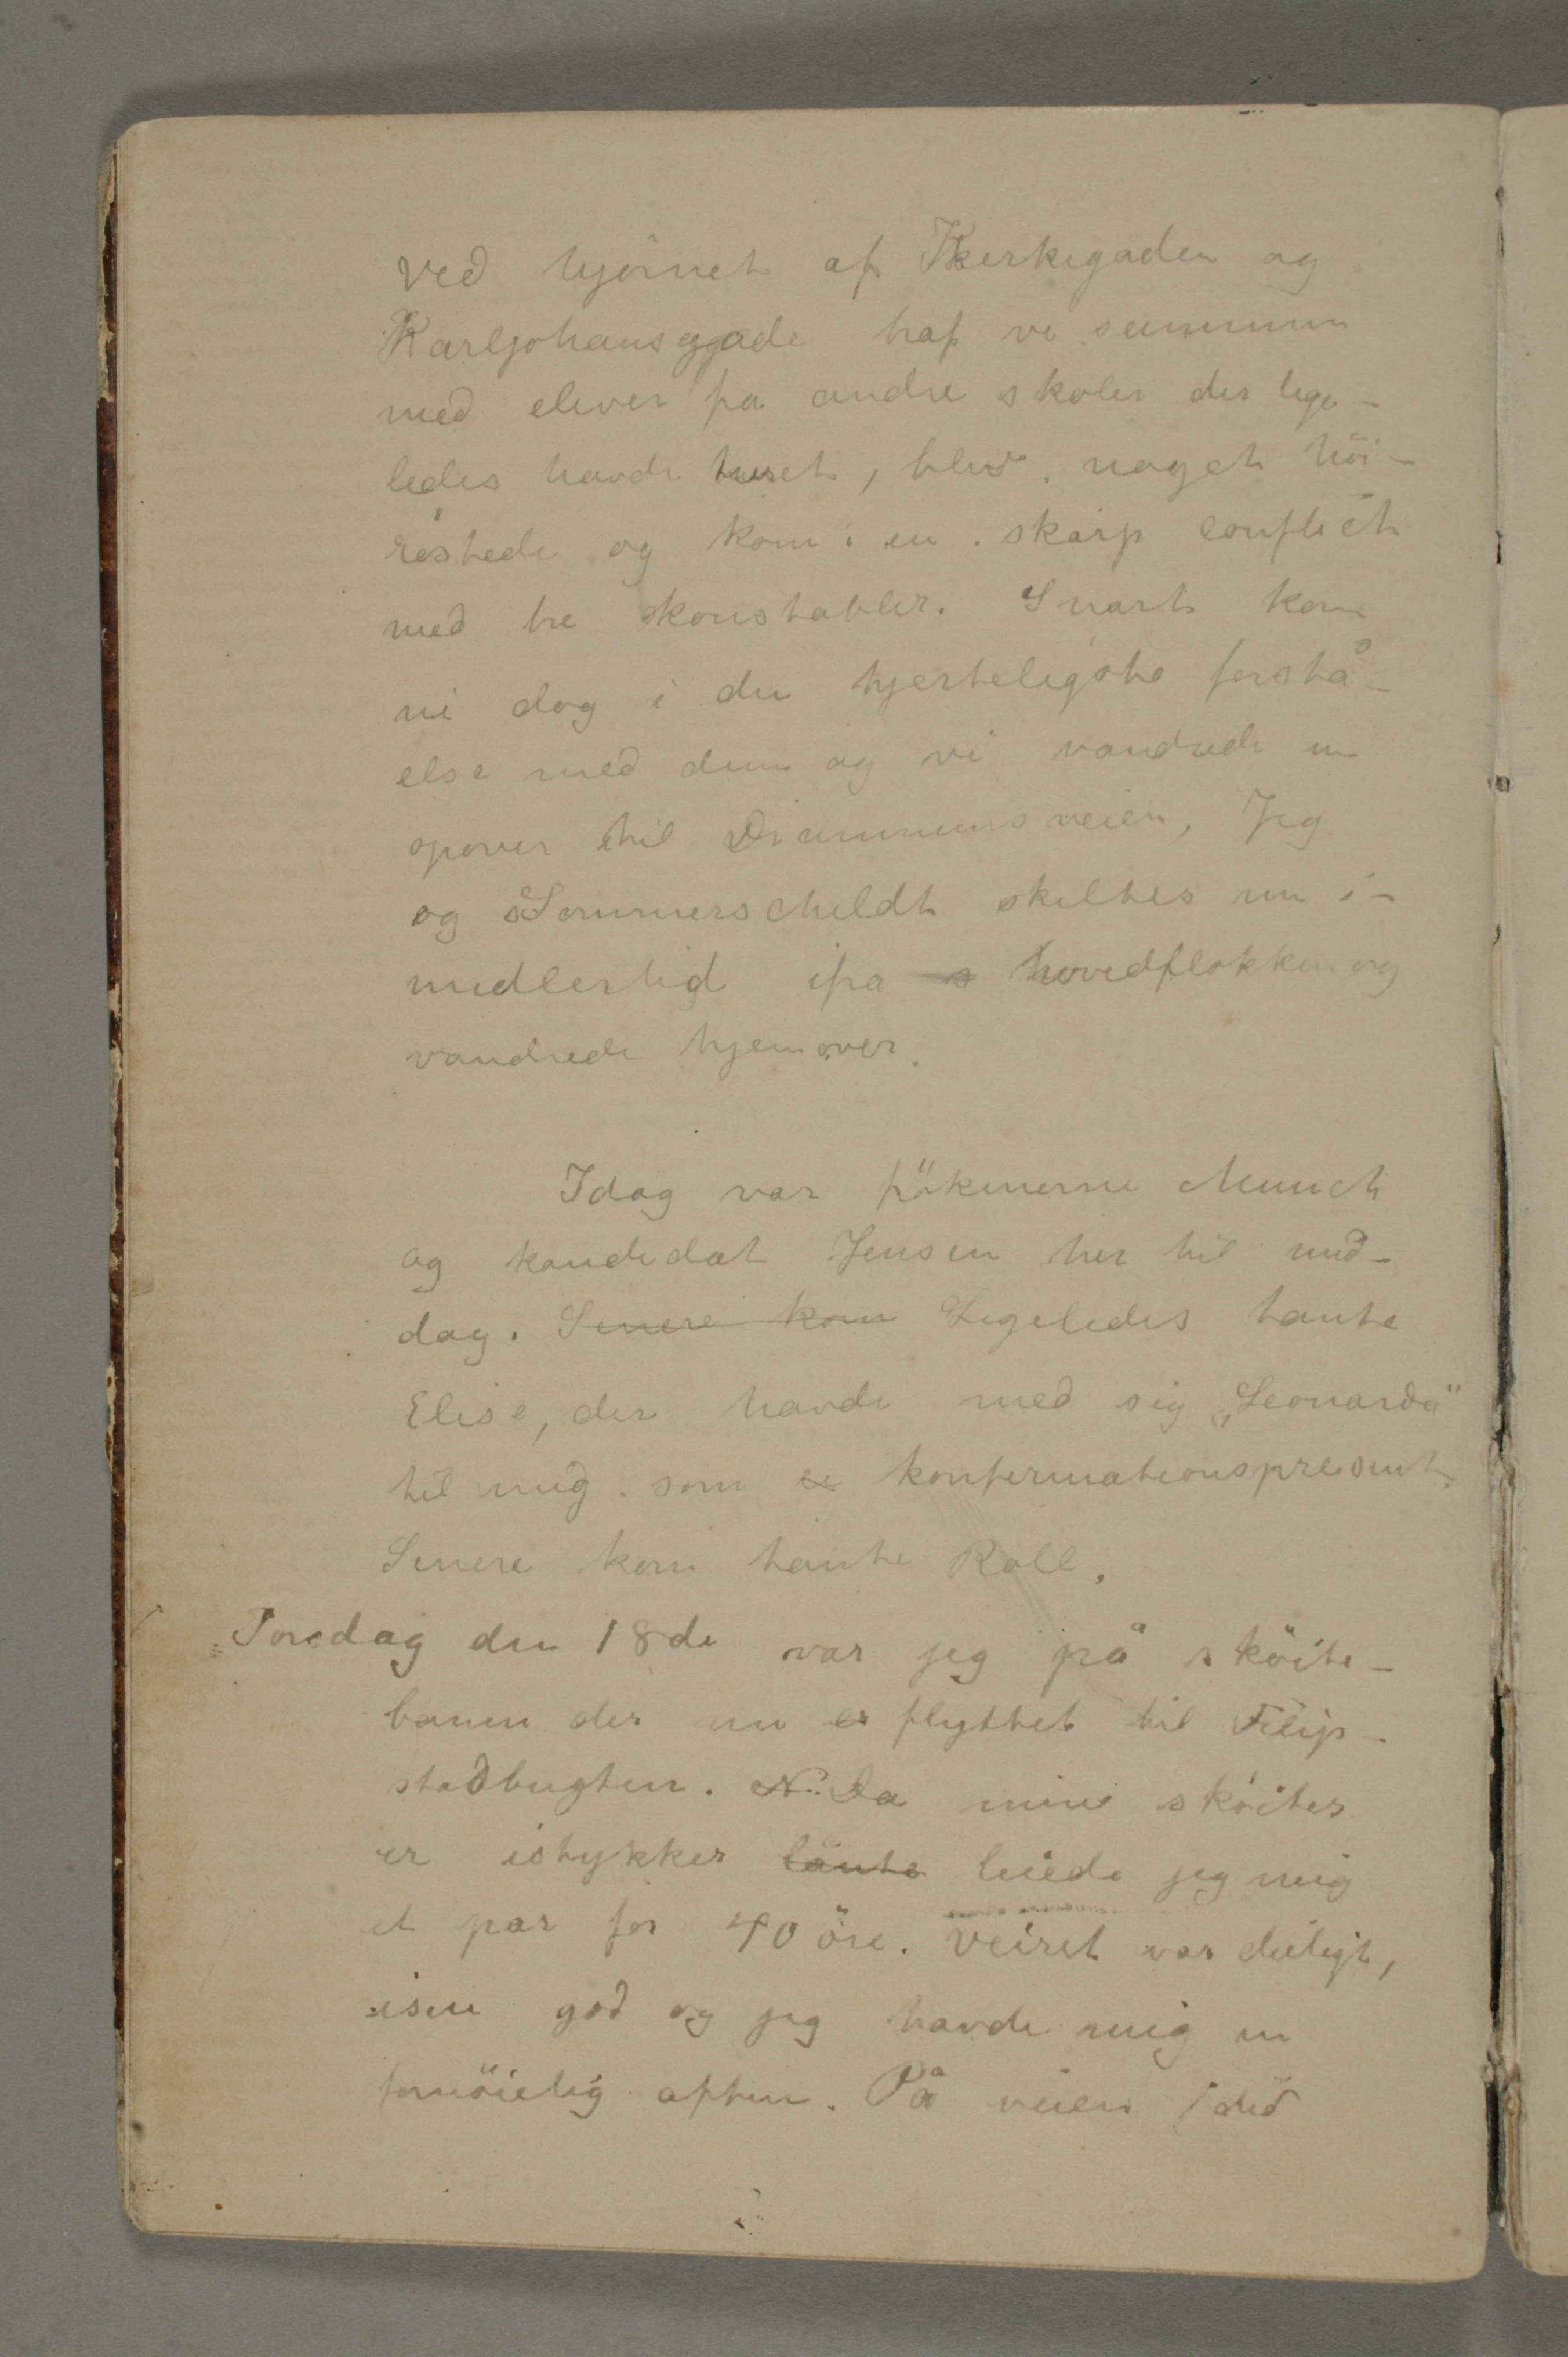 Ved hjörnet af Kirkegaden og
Karljohansgade traf vi sammen
med elever fra andre skoler der lige-
ledes havde turet, blev noget höi-
röstede og kom i en skarp conflict
med tre konstabler. Snart kom
vi dog i den hjerteligste forstå-
else med dem og vi vandrede nu
opover til Drammensveien, Jeg
og Sommerschildt skiltes nu i-
midlertid ifra hovedflokken og
vandrede hjemover.
Idag var frökenerne Munch
og kandidat Jensen her til mid-
dag. Senere kom Ligeledes tante
Elise, der havde med sig „Leonarda"
til mig som konfirmationspresent.
Senere kom tante Roll.
Torsdag den 18de var jeg på sköite-
banen der nu er flyttet til Filip-
stadbugten. Da mine sköiter
er istykker lånte leiede jeg mig
et par for 40 öre. Veiret var deiligt,
isen god og jeg havde mig en
fornöielig aften. På veien did